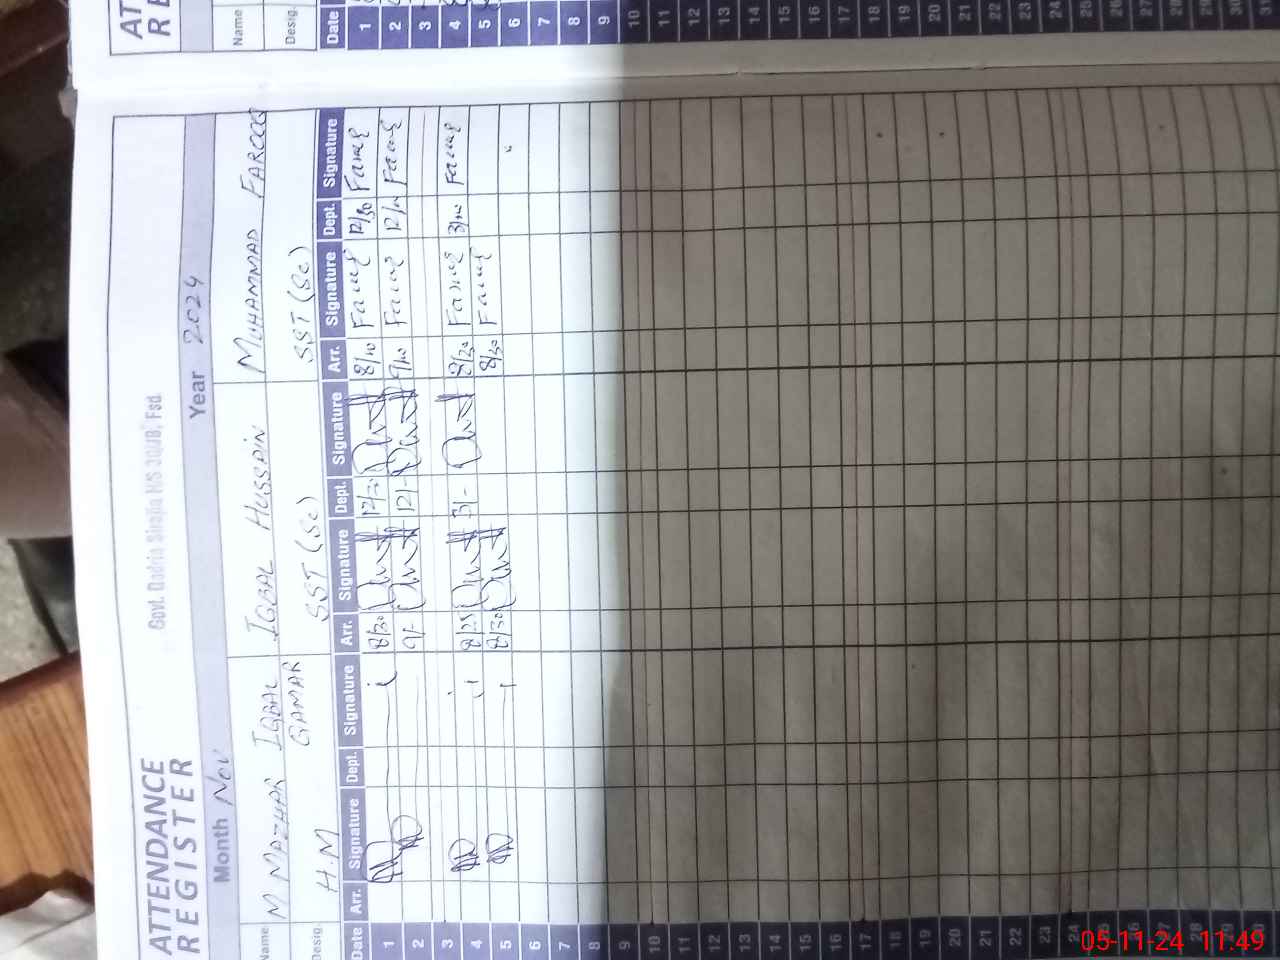 ATTENDANCE
REGISTER
Govt. Qadria Sirajia H/S 30/JB, Fsd.
Month Nov Year 2024
Name M MAZHAR IQBAL QAMAR IQBAL HUSSAIN MUHAMMAD FAROOQ
Desig. H.M SST (Sc) SST (Sc)
Date Arr. Signature Dept. Signature Arr. Signature Dept. Signature Arr. Signature Dept. Signature
1 8/30 12/30 8/10 Farooq 12/30 Farooq
2 9/- 12/- 9/10 Farooq 12/10 Farooq
3
4 8/25 3/- 8/30 Farooq 3/10 Farooq
5 8/30 8/30 Farooq
6
7
8
9
10
11
12
13
14
15
16
17
18
19
20
21
22
23
24
25
26
27
28
29
30
Name
Desig.
Date
1
2
3
4
5
6
7
8
9
10
11
12
13
14
15
16
17
18
19
20
21
22
23
24
25
26
27
28
29
30
31
05-11-24 11:49